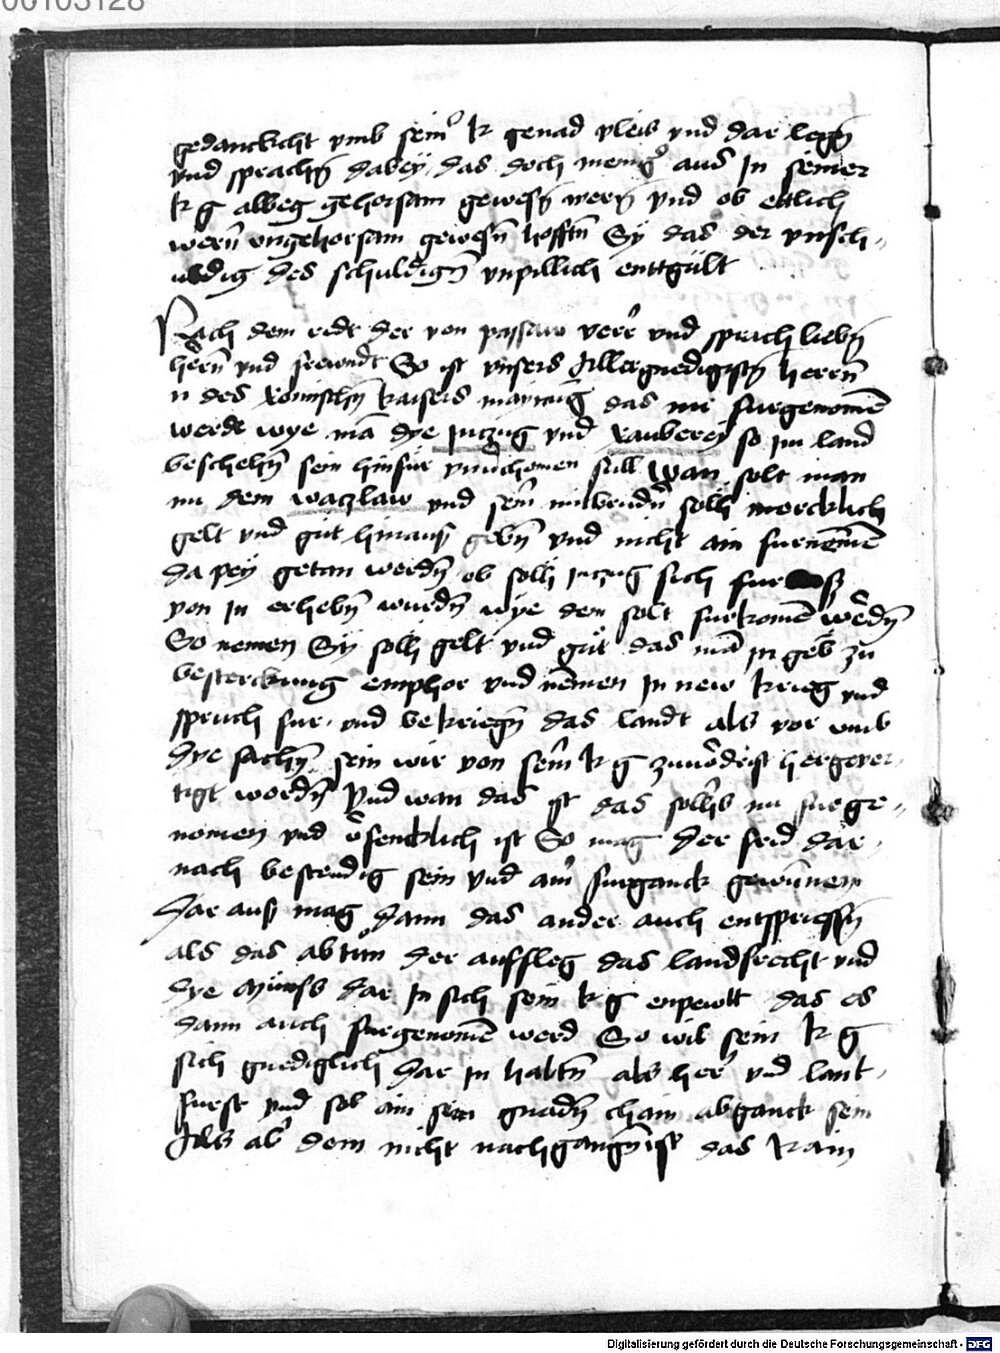 00103128
gedanckcht vmb seinr k genad vleis vnd dar legn̄
vnd sprachn̄ dabey das doch meingr aus In seiner
k g albeg gehorsam gewesn̄ wern̄ vnd ob ettlich
wern̄ vngehorsam gewesn̄ hofftn̄ Sy das der vnsch-
uldig des schuldign̄ vnpillich enttgult
Nach dem redt der von passaw verr vnd sprach liebn̄
hern̄ vnd frewndt So ist vnsers Allergnedigistn̄ herrn̄
n des Romischn̄ kaisers maynūg das nur furgenomē
werde wye mā dye Inczug vnd Rauberey so im land
beschehn̄ sein hinfur vnndchomen sull Wan solt man
nu dem waczlaw vnd sein̄ mitbenādn̄ solh mercklich
gelt vnd gut hinaus gebn̄ vnd nicht ain furnemē
da pey getan werdn̄ ob solh inczug sich fur
von In erhebn̄ wurdn̄ wye dem solt furkomē werdn̄
So nemen Sy solh gelt vnd gut das mā in geb zu
besterckung emphor vnd nemen In new krieg vnd
spruch fur vnd bekriegn̄ das landt als vor vmb
dye sachn̄ sein wir von sein̄ k g zuuodrist hergever-
tigt wordn̄ Vnd wan das ist das solhs nu furge-
nomen vnd offencklich ist So mag der frid dar-
nach bestendig sein vnd ain̄ furganck gewinnen
Dar aus mag dann das ander auch entspriessn̄
als das abtun der aufsleg das landsrecht vnd
dye Muniss dar In sich sein k g erpewtt das es
dann auch furgenomē werd So wil sein k g
sich gnediglich dar In haltn̄ als herr vnd lant-
furst vnd sol ain sein gnadn̄ chain abganck sein
Als abr dem nicht nachgangn̄ ist das kain
Digitalisierung gefördert durch die Deutsche Forschungsgemeinschaft - DFG